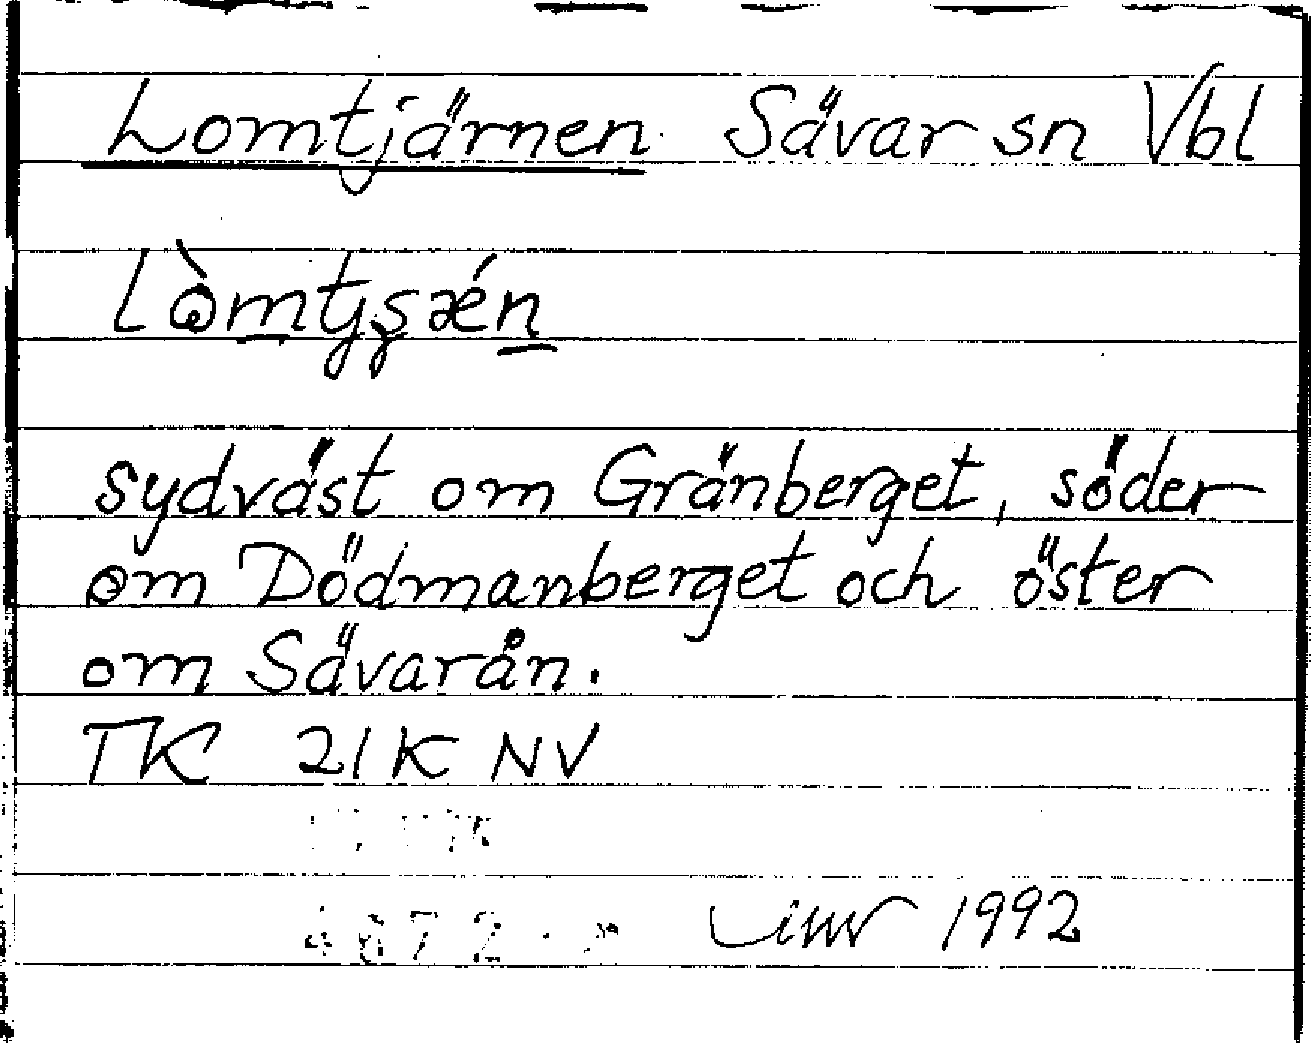 Lomtjärnen Sävar sn Vbl
sydväst om Gränberget, söder
om Dödmanberget och öster
om Sävarån.
TK 21K NV
4672
1992